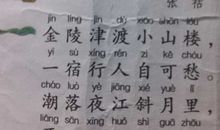 张 祜
jīn líng jīn dù xiǎo shān lóu
金陵津渡小山楼，
yì sù xíng rén zì kě chóu
一宿行人自可愁。
cháo luò yè jiāng xié yuè lǐ
潮落夜江斜月里，
liǎng sān xīng huǒ shì guā zhōu